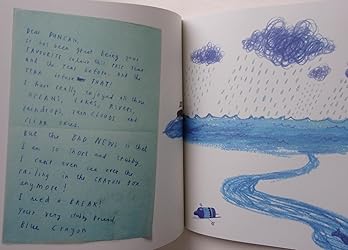 DEAR DUNCAN,
It has been great being your
FAVOURITE colour this past year
And the year before. And the
YEAR before THAT!
I have really enjoyed all those
OCEANS, LAKES, RIVERS,
RAINDROPS, RAIN CLOUDS and
CLEAR SKIES.
But the BAD NEWS is that
I am so short and stubby
I can't even see over the
railing in the CRAYON BOX
anymore!
I need a BREAK!
Your very stubby friend,
Blue Crayon